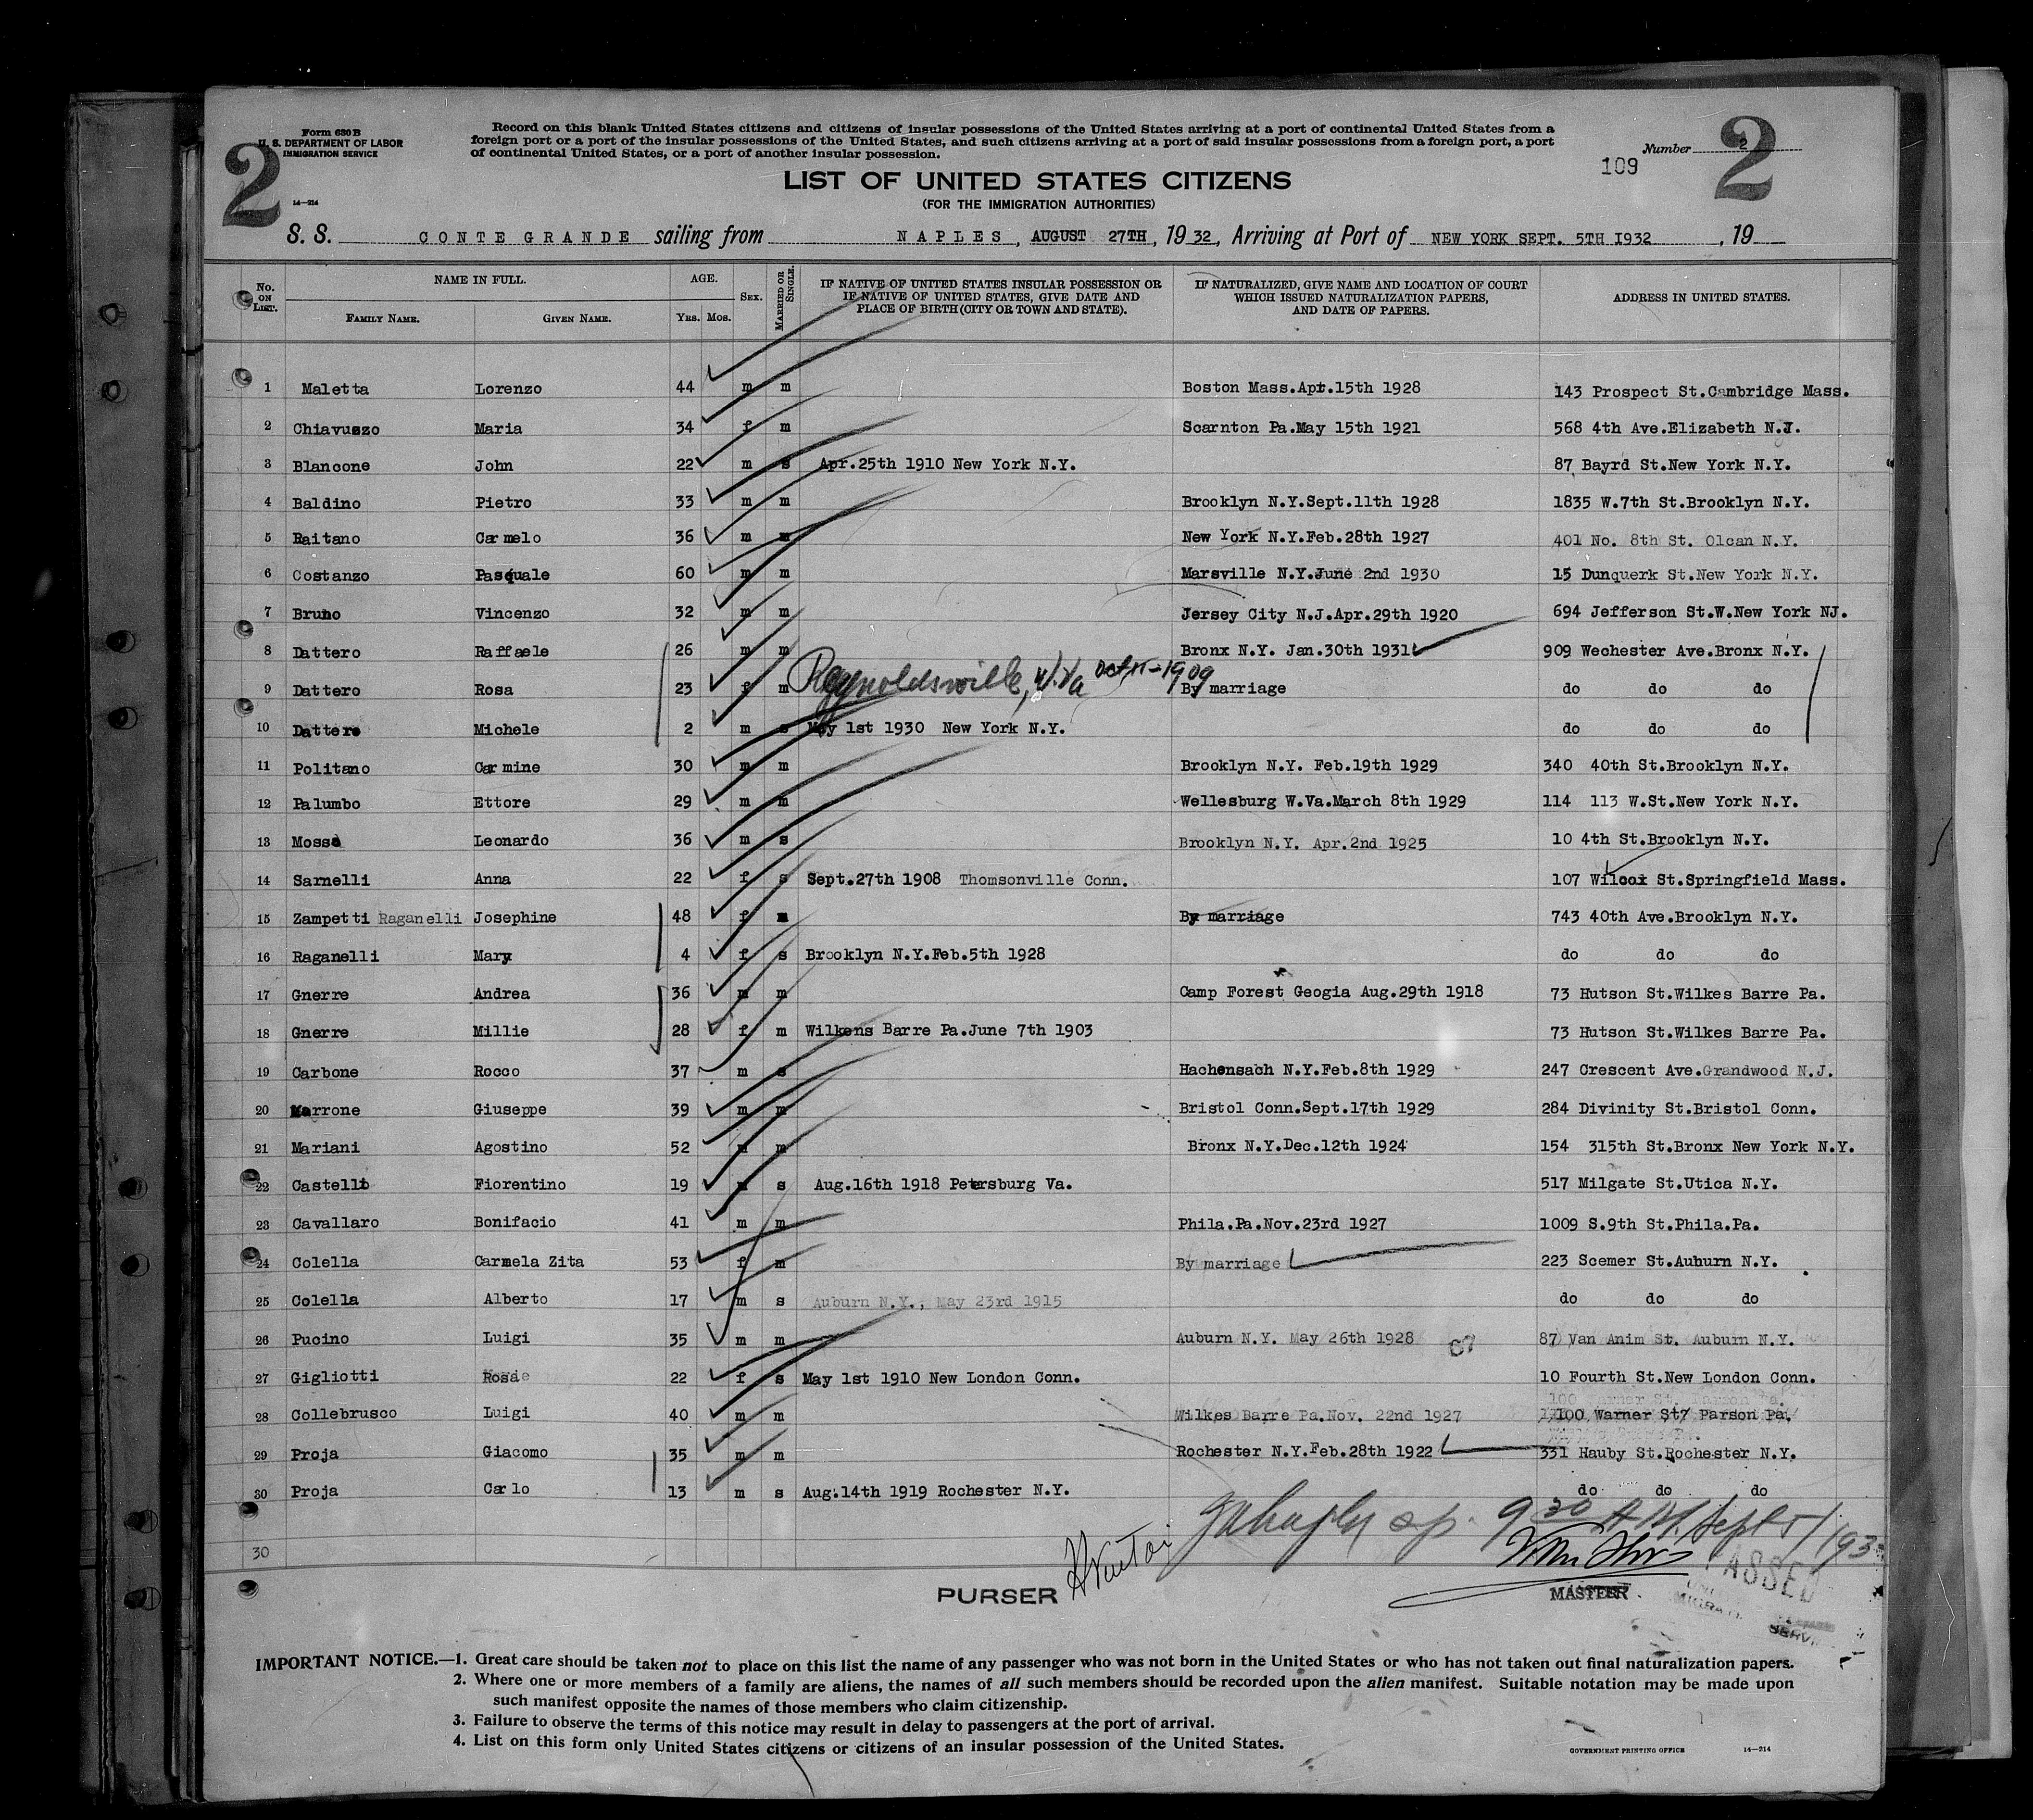 Form 630 B
U. S. DEPARTMENT OF LABOR
IMMIGRATION SERVICE
2
14—214
Record on this blank United States citizens and citizens of insular possessions of the United States arriving at a port of continental United States from a
foreign port or a port of the insular possessions of the United States, and such citizens arriving at a port of said insular possessions from a foreign port, a port
of continental United States, or a port of another insular possession.
Number 2
2
109
LIST OF UNITED STATES CITIZENS
(FOR THE IMMIGRATION AUTHORITIES)
S. S. CONTE GRANDE sailing from NAPLES, AUGUST 27TH, 1932, Arriving at Port of NEW YORK SEPT. 5TH 1932, 19
No. ON LIST. NAME IN FULL. FAMILY NAME. GIVEN NAME. AGE. YRS. MOS. SEX. MARRIED OR SINGLE. IF NATIVE OF UNITED STATES INSULAR POSSESSION OR IF NATIVE OF UNITED STATES, GIVE DATE AND PLACE OF BIRTH (CITY OR TOWN AND STATE). IF NATURALIZED, GIVE NAME AND LOCATION OF COURT WHICH ISSUED NATURALIZATION PAPERS, AND DATE OF PAPERS. ADDRESS IN UNITED STATES.
1 Maletta Lorenzo 44 m m Boston Mass.Apr.15th 1928 143 Prospect St.Cambridge Mass.
2 Chiavuzzo Maria 34 f m Scarnton Pa.May 15th 1921 568 4th Ave.Elizabeth N.J.
3 Blancone John 22 m s Apr.25th 1910 New York N.Y. 87 Bayrd St.New York N.Y.
4 Baldino Pietro 33 m m Brooklyn N.Y.Sept.11th 1928 1835 W.7th St.Brooklyn N.Y.
5 Raitano Carmelo 36 m m New York N.Y.Feb.28th 1927 401 No. 8th St. Olcan N.Y.
6 Costanzo Pasquale 60 m m Marsville N.Y.June 2nd 1930 15 Dunquerk St.New York N.Y.
7 Bruno Vincenzo 32 m m Jersey City N.J.Apr.29th 1920 694 Jefferson St.W.New York NJ.
8 Dattero Raffaele 26 m m Bronx N.Y. Jan.30th 1931 909 Wechester Ave.Bronx N.Y.
9 Dattero Rosa 23 f m Reynoldsville, W.Va Oct 15-1909 By marriage do do do
10 Dattero Michele 2 m s May 1st 1930 New York N.Y. do do do
11 Politano Carmine 30 m m Brooklyn N.Y. Feb.19th 1929 340 40th St.Brooklyn N.Y.
12 Palumbo Ettore 29 m m Wellesburg W.Va.March 8th 1929 114 113 W.St.New York N.Y.
13 Mossa Leonardo 36 m s Brooklyn N.Y. Apr.2nd 1925 10 4th St.Brooklyn N.Y.
14 Sarnelli Anna 22 f s Sept.27th 1908 Thomsonville Conn. 107 Wilcox St.Springfield Mass.
15 Zampetti Raganelli Josephine 48 f By marriage 743 40th Ave.Brooklyn N.Y.
16 Raganelli Mary 4 f s Brooklyn N.Y.Feb.5th 1928 do do do
17 Gnerre Andrea 36 m m Camp Forest Geogia Aug.29th 1918 73 Hutson St.Wilkes Barre Pa.
18 Gnerre Millie 28 f m Wilkens Barre Pa.June 7th 1903 73 Hutson St.Wilkes Barre Pa.
19 Carbone Rocco 37 m s Hachensach N.Y.Feb.8th 1929 247 Crescent Ave.Grandwood N.J.
20 Marrone Giuseppe 39 m m Bristol Conn.Sept.17th 1929 284 Divinity St.Bristol Conn.
21 Mariani Agostino 52 m m Bronx N.Y.Dec.12th 1924 154 315th St.Bronx New York N.Y.
22 Castelli Fiorentino 19 m s Aug.16th 1918 Petersburg Va. 517 Milgate St.Utica N.Y.
23 Cavallaro Bonifacio 41 m m Phila.Pa.Nov.23rd 1927 1009 S.9th St.Phila.Pa.
24 Colella Carmela Zita 53 f m By marriage 223 Scemer St.Auburn N.Y.
25 Colella Alberto 17 m s Auburn N.Y., May 23rd 1915 do do do
26 Pucino Luigi 35 m m Auburn N.Y. May 26th 1928 87 Van Anim St. Auburn N.Y.
27 Gigliotti Rosa 22 f s May 1st 1910 New London Conn. 10 Fourth St.New London Conn.
28 Collebrusco Luigi 40 m m Wilkes Barre Pa.Nov. 22nd 1927 100 Warner St Parson Pa.
29 Proja Giacomo 35 m m Rochester N.Y.Feb.28th 1922 331 Hauby St.Rochester N.Y.
30 Proja Carlo 13 m s Aug.14th 1919 Rochester N.Y. do do do
30
9 30 A.M. Sept 5/193
PURSER
MASTER
PASSED
IMPORTANT NOTICE.—1. Great care should be taken not to place on this list the name of any passenger who was not born in the United States or who has not taken out final naturalization papers.
2. Where one or more members of a family are aliens, the names of all such members should be recorded upon the alien manifest. Suitable notation may be made upon
such manifest opposite the names of those members who claim citizenship.
3. Failure to observe the terms of this notice may result in delay to passengers at the port of arrival.
4. List on this form only United States citizens or citizens of an insular possession of the United States.
GOVERNMENT PRINTING OFFICE 14—214